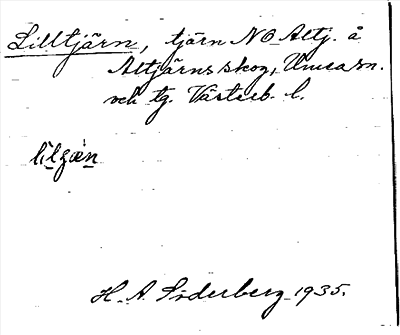 Lilltjärn, tjärn NO Altj. å
Altjärns skog, Umeå sn.
och tg. Västerb. l.
lilʒæn
H. A. Söderberg 1935.